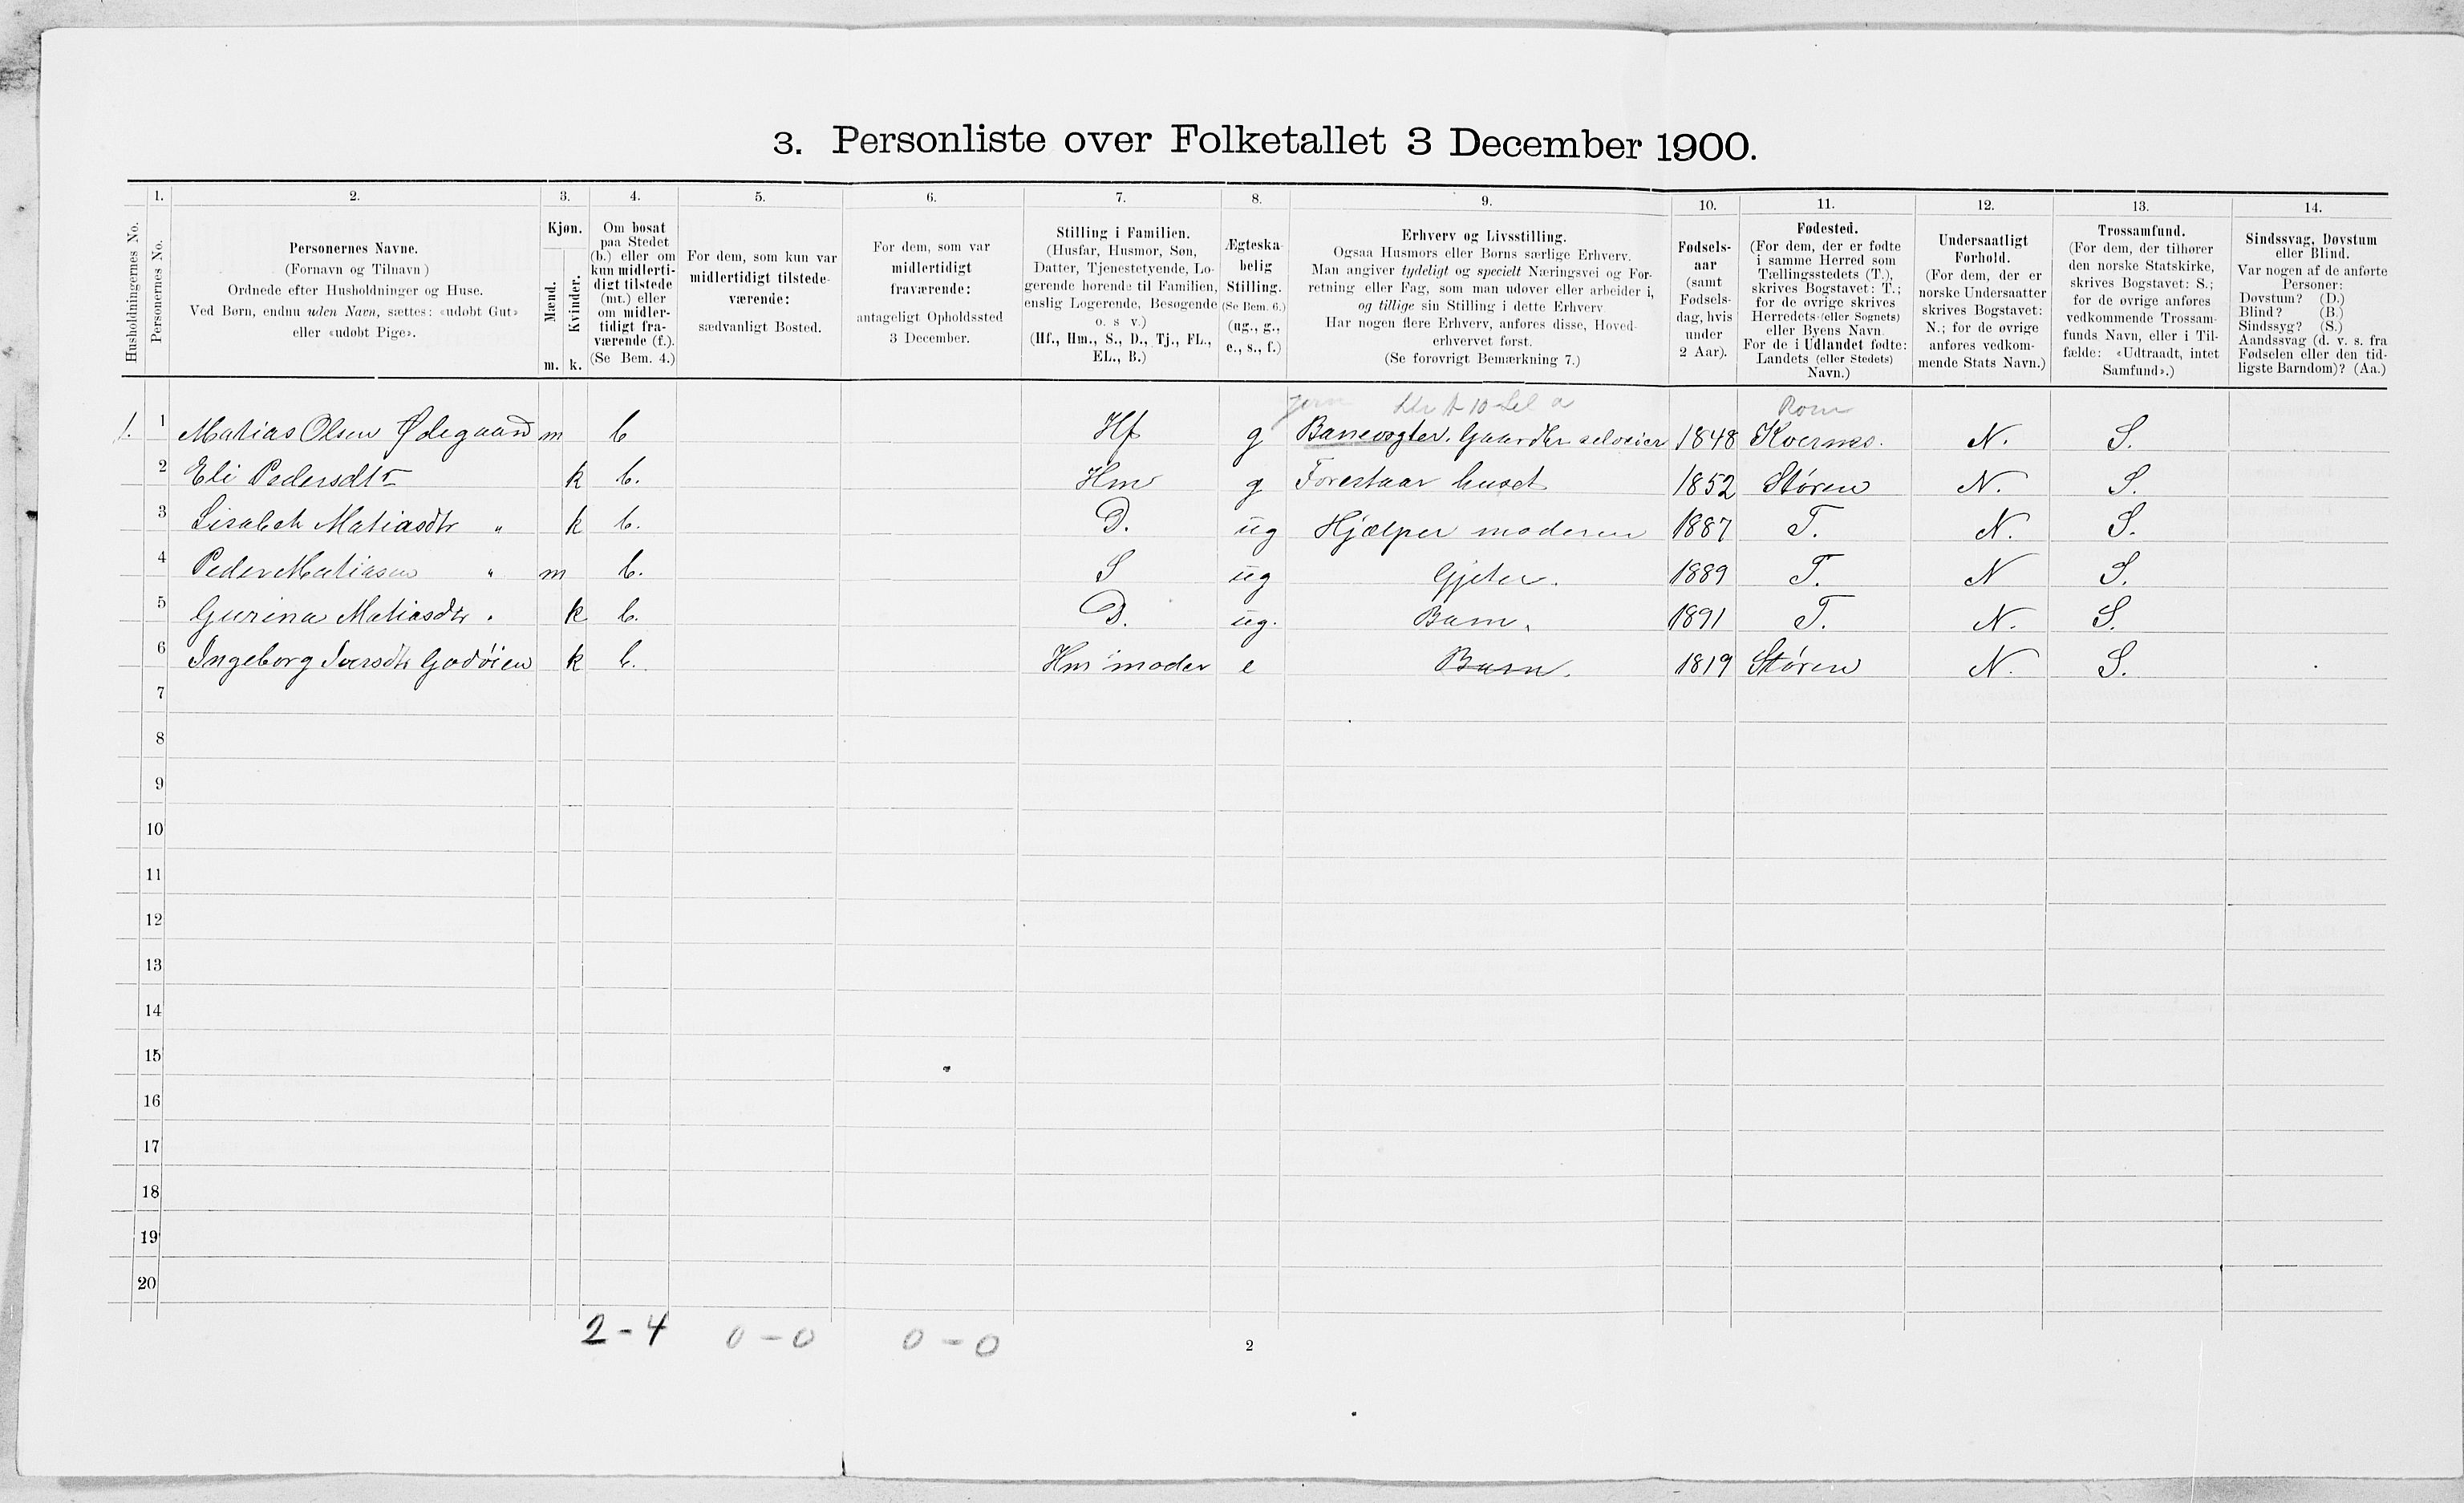 3. Personliste over Folketallet 3 December 1900.
Husholdningernes No.
1.
Personernes No.
2.
Personernes Navne.
(Fornavn og Tilnavn)
Ordnede efter Husholdninger og Huse.
Ved Børn, endnu uden Navn, sættes: «udøbt Gut»
eller «udøbt Pige».
3.
Kjøn.
Mænd.
Kvinder.
m. k.
4.
Om bosat
paa Stedet
(b.) eller om
kun midlerti-
digt tilstede
(mt.) eller
om midler-
tidigt fra-
værende (f.).
(Se Bem. 4.)
5.
For dem, som kun var
midlertidigt tilstede-
værende:
sædvanligt Bosted.
6.
For dem, som var
midlertidigt
fraværende:
antageligt Opholdssted
3 December.
7.
Stilling i Familien.
(Husfar, Husmor, Søn,
Datter, Tjenestetyende, Lo-
gerende hørende til Familien,
enslig Logerende, Besøgende
o. s v.)
(Hf., Hm., S., D., Tj., FL.,
EL., B.)
8.
Ægteska-
belig
Stilling.
(Se Bem. 6.)
(ug., g.,
e., s., f.)
9.
Erhverv og Livsstilling.
Ogsaa Husmors eller Børns særlige Erhverv.
Man angiver tydeligt og specielt Næringsvei og For-
retning eller Fag, som man udøver eller arbeider i,
og tillige sin Stilling i dette Erhverv
Har nogen flere Erhverv, anføres disse, Hoved-
erhvervet først.
(Se forøvrigt Bemærkning 7.)
10.
Fødsels-
aar
(samt
Fødsels-
dag, hvis
under
2 Aar).
11.
Fødested.
(For dem, der er fødte
i samme Herred som
Tællingsstedets (T.),
skrives Bogstavet: T.;
for de øvrige skrives
Herredets (eller Sognets)
eller Byens Navn.
For de i Udlandet fødte:
Landets (eller Stedets)
Navn.)
12.
Undersaatligt
Forhold.
(For dem, der er
norske Undersaatter
skrives Bogstavet:
N.; for de øvrige
anføres vedkom-
mende Stats Navn.)
13.
Trossamfund.
(For dem, der tilhører
den norske Statskirke,
skrives Bogstavet: S.;
for de øvrige anføres
vedkommende Trossam-
funds Navn, eller i Til-
fælde: «Udtraadt, intet
Samfund».)
14.
Sindssvag, Døvstum
eller Blind.
Var nogen af de anførte
Personer:
Døvstum? (D.)
Blind? (B.)
Sindssyg? (S.)
Aandssvag (d. v. s. fra
Fødselen eller den tid-
ligste Barndom)? (Aa.)
Rom
1. 1 Matias Olsen Ødegaard m b Hf g Banevogter. Gaardbr selveier 1848 Kvernes. N. S.
2 Eli Pedersdtr k b. Hm g Forestaar huset 1852 Støren N. S.
3 Lisabet Matiasdtr " k b. D. ug Hjælper moderen 1887 T. N. S.
4 Peder Matiasen " m b. S ug Gjeter. 1889 T. N S.
5 Gurina Matiasdtr " k b. D. ug. Barn. 1891 T. N. S.
6 Ingeborg Iversdtr Godøien k b. Hm moder e Barn. 1819 Støren N. S.
7
8
9
10
11
12
13
14
15
16
17
18
19
20
2-4 0-0 0-0
2